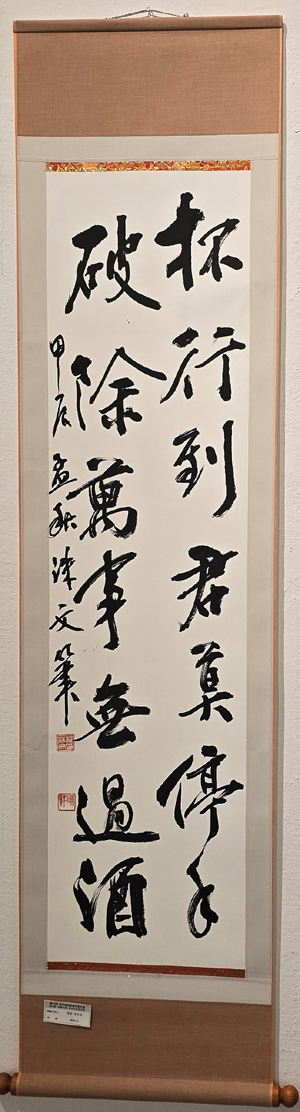 杯行到君莫停手
破除萬事無過酒
甲辰孟秋 文筆